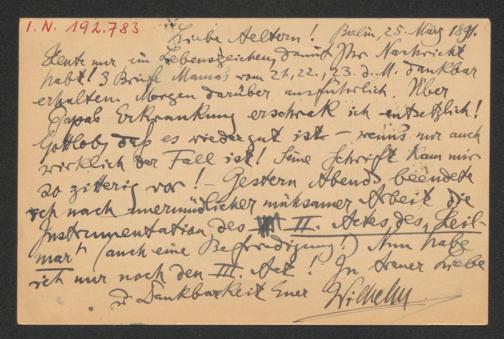 I. N. 192.783
Liebe Aeltern! Berlin, 25. März 1891.
Heute nur ein Lebenszeichen, damit Ihr Nachricht
habt! 3 Briefe Mama's vom 21., 22., 23. d. M. dankbar
erhalten, Morgen darüber ausführlich. Über
Papas Erkrankung erschrak ich entsetzlich!
Gottlob, daß es wieder gut ist – wenn's nur auch
wirklich der Fall ist! Seine Schrift kam mir
so zitterig vor! – Gestern Abends beendete
ich nach unermüdlicher mühsamer Arbeit die
Instrumentation des II. Actes des „Heil-
mar" (auch eine Befriedigung!) Nun habe
ich nur noch den III. Act! In treuer Liebe
u. Dankbarkeit Euer Wilhelm